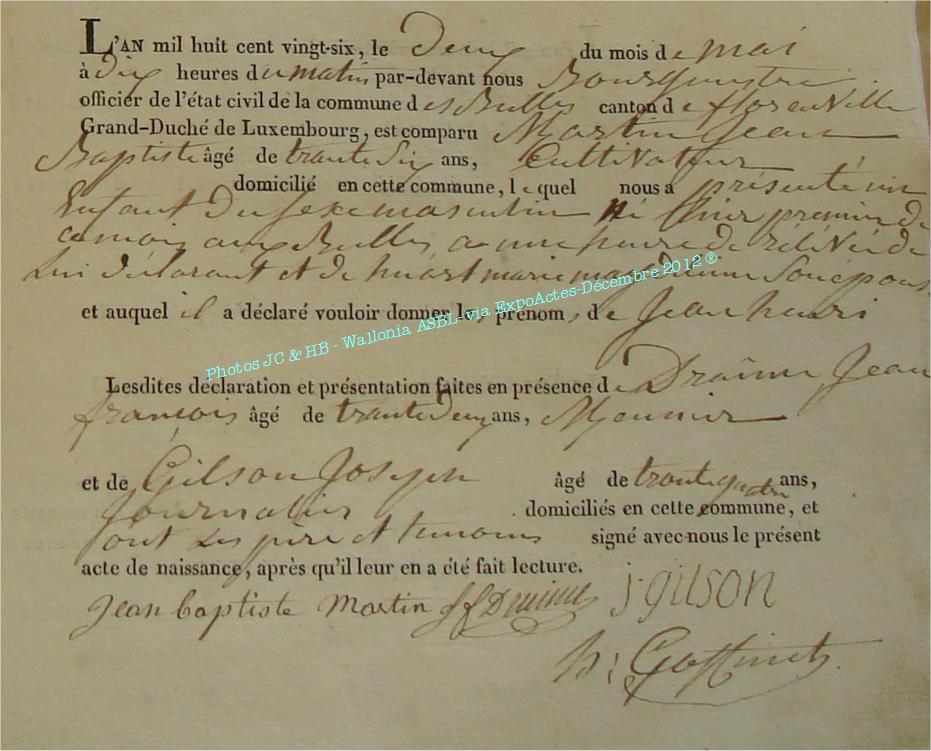 L'AN mil huit cent vingt-six, le Deux du mois de mai
à Dix heures du matin par-devant nous Bourguestre
officier de l'état civil de la commune des Bulles canton de florenville
Grand-Duché de Luxembourg, est comparu Martin Jean
Baptiste âgé de trante Six ans, Cultivateur
domicilié en cette commune, lequel nous a présenté un
Enfant Du Sexe masculin Né hier premier de
ce mois aux Bulles a une heure de rélévée de
Lui déclarant et de huart marie magdelenne Son épouse
et auquel il a déclaré vouloir donner les prénoms de Jean henri
Photos JC & HB - Wallonia ASBL-via ExpoActes-Décembre 2012 ®
Lesdites déclaration et présentation faites en présence de Draime Jean
françois âgé de trante Deux ans, Meunier
et de Gilson Joseph âgé de trante quatre ans,
Journalier domiciliés en cette commune, et
ont Les père et temoins signé avec nous le présent
acte de naissance, après qu'il leur en a été fait lecture.
Jean baptiste Martin J f Draime j. gilson
h: Goffinet